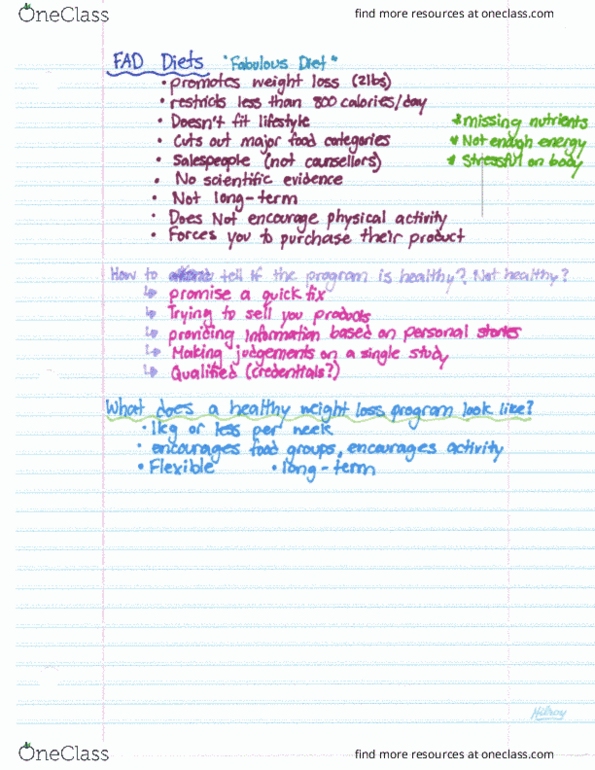 OneClass
find more resources at oneclass.com
FAD Diets "Fabulous Diet"
• promotes weight loss (2lbs)
• restricts less than 800 calories/day
• Doesn't fit lifestyle
* missing nutrients
• Cuts out major food categories
* Not enough energy
• Salespeople (not counsellors)
* Stressful on body
• No scientific evidence
• Not long-term
• Does Not encourage physical activity
• Forces you to purchase their product
How to tell if the program is healthy? Not healthy?
↳ promise a quick fix
↳ Trying to sell you products
↳ providing information based on personal stories
↳ Making judgements on a single study
↳ Qualified (credentials?)
What does a healthy weight loss program look like?
• 1kg or less per week
• encourages food groups, encourages activity
• Flexible • long-term
Hilroy
OneClass
find more resources at oneclass.com